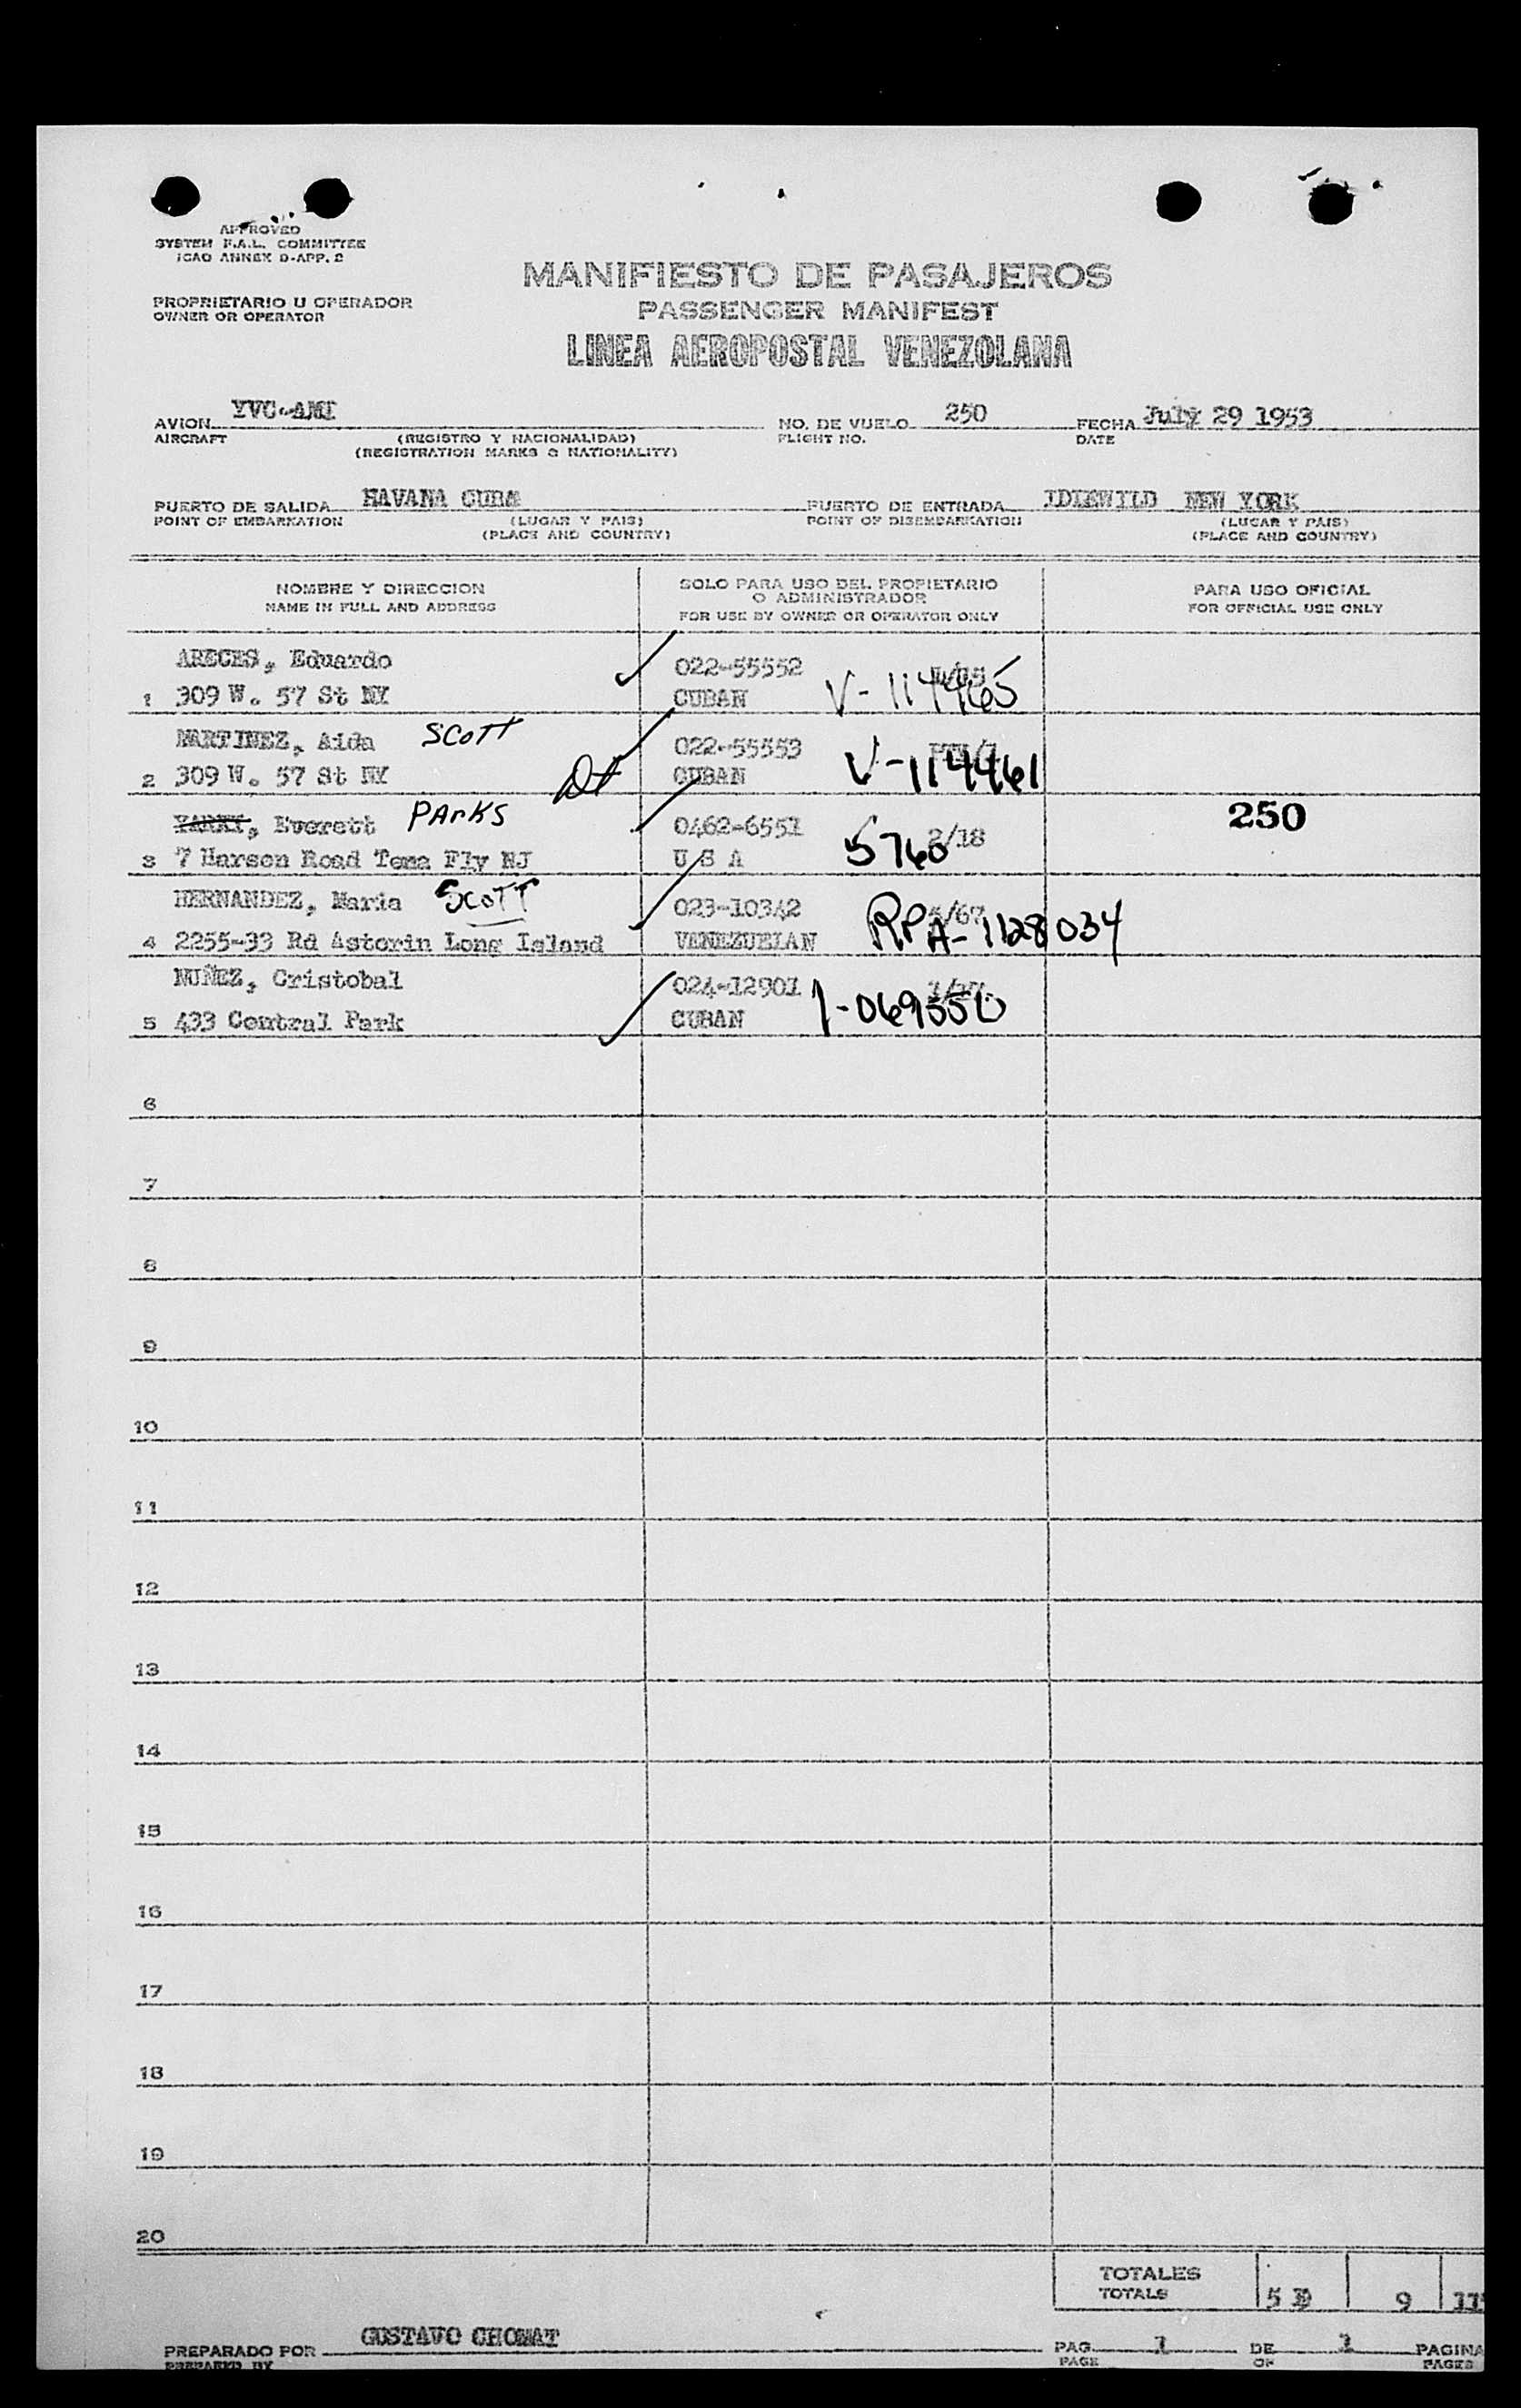 APPROVED
SYSTEM F.A.L. COMMITTEE
ICAO ANNEX 9-APP. 2
PROPRIETARIO U OPERADOR
OWNER OR OPERATOR
MANIFIESTO DE PASAJEROS
PASSENGER MANIFEST
LINEA AEROPOSTAL VENEZOLANA
AVION YVC-AMI
AIRCRAFT
(REGISTRO Y NACIONALIDAD)
(REGISTRATION MARKS & NATIONALITY)
NO. DE VUELO 250
FLIGHT NO.
FECHA July 29 1953
DATE
PUERTO DE SALIDA HAVANA CUBA
POINT OF EMBARKATION
(LUGAR Y PAIS)
(PLACE AND COUNTRY)
PUERTO DE ENTRADA IDLEWILD NEW YORK
POINT OF DISEMBARKATION
(LUGAR Y PAIS)
(PLACE AND COUNTRY)
NOMBRE Y DIRECCION
NAME IN FULL AND ADDRESS
SOLO PARA USO DEL PROPIETARIO
O ADMINISTRADOR
FOR USE BY OWNER OR OPERATOR ONLY
PARA USO OFICIAL
FOR OFFICIAL USE ONLY
ARECES, Eduardo 022-55552
1 309 W. 57 St NY CUBAN V-114465
MARTINEZ, Aida SCOTT 022-55553
2 309 W. 57 St NY CUBAN V-114461
Everett PARKS 0462-6551 2/18 250
3 7 Harson Road Tena Fly NJ U S A 5760
HERNANDEZ, Maria SCOTT 023-10342 /67
4 2255-33 Rd Astorin Long Island VENEZUELAN RPA-1128034
NUÑEZ, Cristobal 024-12901
5 433 Central Park CUBAN
6
7
8
9
10
11
12
13
14
15
16
17
18
19
20
TOTALES
TOTALS
5 9
PREPARADO POR GUSTAVO CHOMAT
PREPARED BY
PAG. 1 DE 1 PAGINA
PAGE OF PAGES